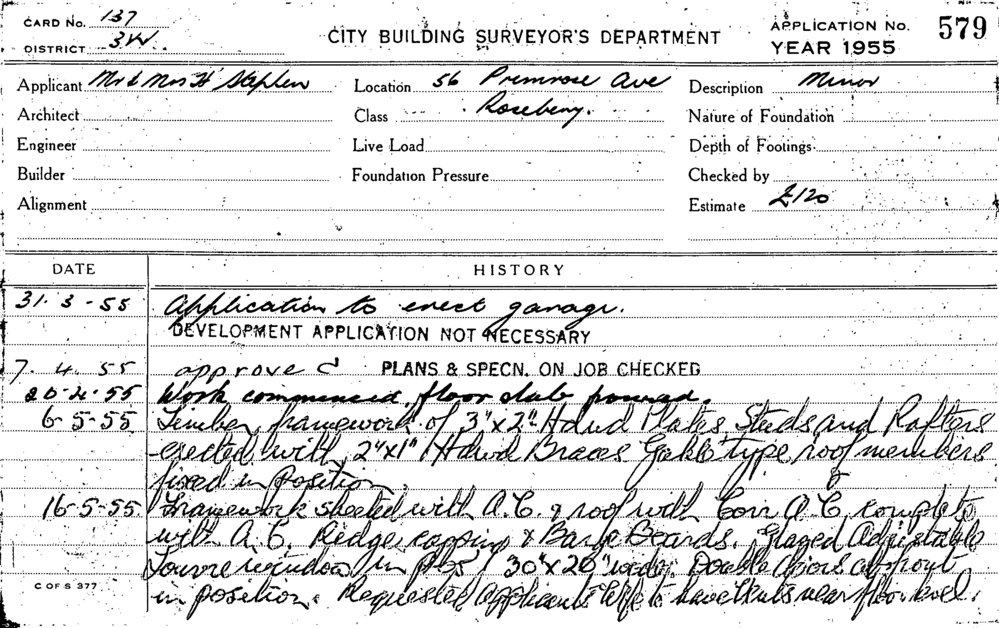 CARD No. 137
DISTRICT 3W.
CITY BUILDING SURVEYOR'S DEPARTMENT
APPLICATION No. 579
YEAR 1955
Applicant Mr & Mrs H Stephen Location 56 Primrose Ave Description Minor
Architect Class Rosebery. Nature of Foundation
Engineer Live Load Depth of Footings
Builder Foundation Pressure Checked by
Alignment Estimate £120
DATE HISTORY
31.3-55 Application to erect garage.
DEVELOPMENT APPLICATION NOT NECESSARY
7.4.55 approved PLANS & SPECN. ON JOB CHECKED
20-4-55 Work commenced, floor slab poured.
6-5-55 Timber framework of 3"x2" Hdwd Plates Studs and Rafters
erected with 2"x1" Hdwd Braces Gable type roof members
fixed in position
16-5-55 Framework sheeted with A.C. & roof with Corr A.C. complete
with A.C. Ridge capping & Barge Boards. Glazed Adjustable
Louvre window in 30"x20" wide. Double doors at front
in position. Requested applicants wife to have vents near floor level.
C OF S 377